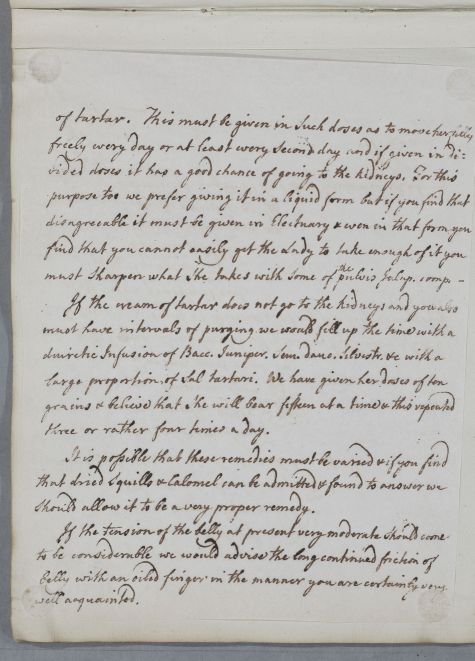 of tartar. This must be given in such doses as to move her belly
freely every day or at least every second day and if given in di=
vided doses it has a good chance of going to the kidneys. For this
purpose too we prefer giving it in a liquid form but if you find that
disagreeable it must be given in Electuary & even in that form you
find that you cannot easily get the Lady to take enough of it you
must sharpen what she takes with some of the pulvis Jalap. comp -
If the cream of tartar does not go to the kidneys and you also
must have intervals of purging we would fill up the time with a
diuretic Infusion of Bacc. Juniper. Sem. dauc. Silvestr. &c with a
large proportion of Sal tartari. We have given her doses of ten
grains & believe that she will bear fifteen at a time & this repeated
three or rather four times a day.
It is possible that these remedies must be varied & if you find
that dried Squills & Calomel can be admitted & found to answer we
should allow it to be a very proper remedy.
If the tension of the belly at present very moderate should come
to be considerable we would advise the long continued friction of
belly with an oiled finger in the manner you are certainly very
well acquainted.